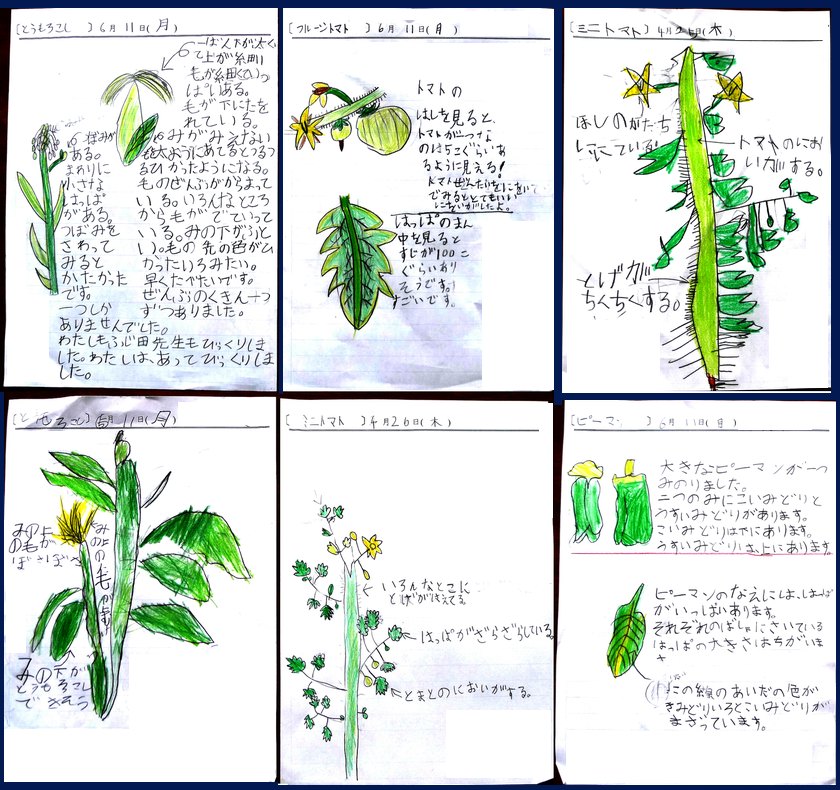 [とうもろこし ] 6月 11日(月)
一ばん下が太く
て上が糸田い
毛が糸田くていっ
ぱいある。
毛が下にたを
れている。
みがみえない
ある。
まわりに
小さな
はっぱ
がある。
つぼみを
さわって
みると
かたかった
です。
一つしか
ありませんでした。
ひかったようになる。
ものぜんぶがからまって
いる。いろんなところ
から毛がでていって
いる。みの下がふと
い。毛の先の色がひ
かったいろみたい。
早くたべたいです。
ぜんぶのくきに一つ
ずつありました。
した。わたしは、あってびっくりしま
した。
[フルーツトマト ] 6月 11日(月)
トマトの
はしを見ると、
トマトがつな
のはちこぐらいあ
るように見える!
はっぱのまん
中を見ると
すじが100こ
ぐらいあり
そうです。
すごいです。
[ミニトマト ] 4月26日(木)
ほしのかたち
ににている!
トマトのにお
いがする。
とげが
ちくちくする。
[とうもろこし] 6月 11日(月)
みの上
の毛が
ぼさぼさ
みの下が
とうもろこし
できそう
[ ミニトマト ] 4月26日(木)
いろんなとこに
とげがはえてる。
はっぱがざらざらしている。
とまとのにおいがする。
[ピーマン ] 6月 11日(月)
大きなピーマンが一つ
みのりました。
二つのみにこいみどりと
うすいみどりがあります。
こいみどりは下にあります。
うすいみどりは、上にあります。
ピーマンのなえには、はっぱ
がいっぱいあります。
それぞれのばしょにさいている
はっぱの大きさはちがいま
す
この線のあいだの色が
きみどりいろとこいみどりが
まざっています。